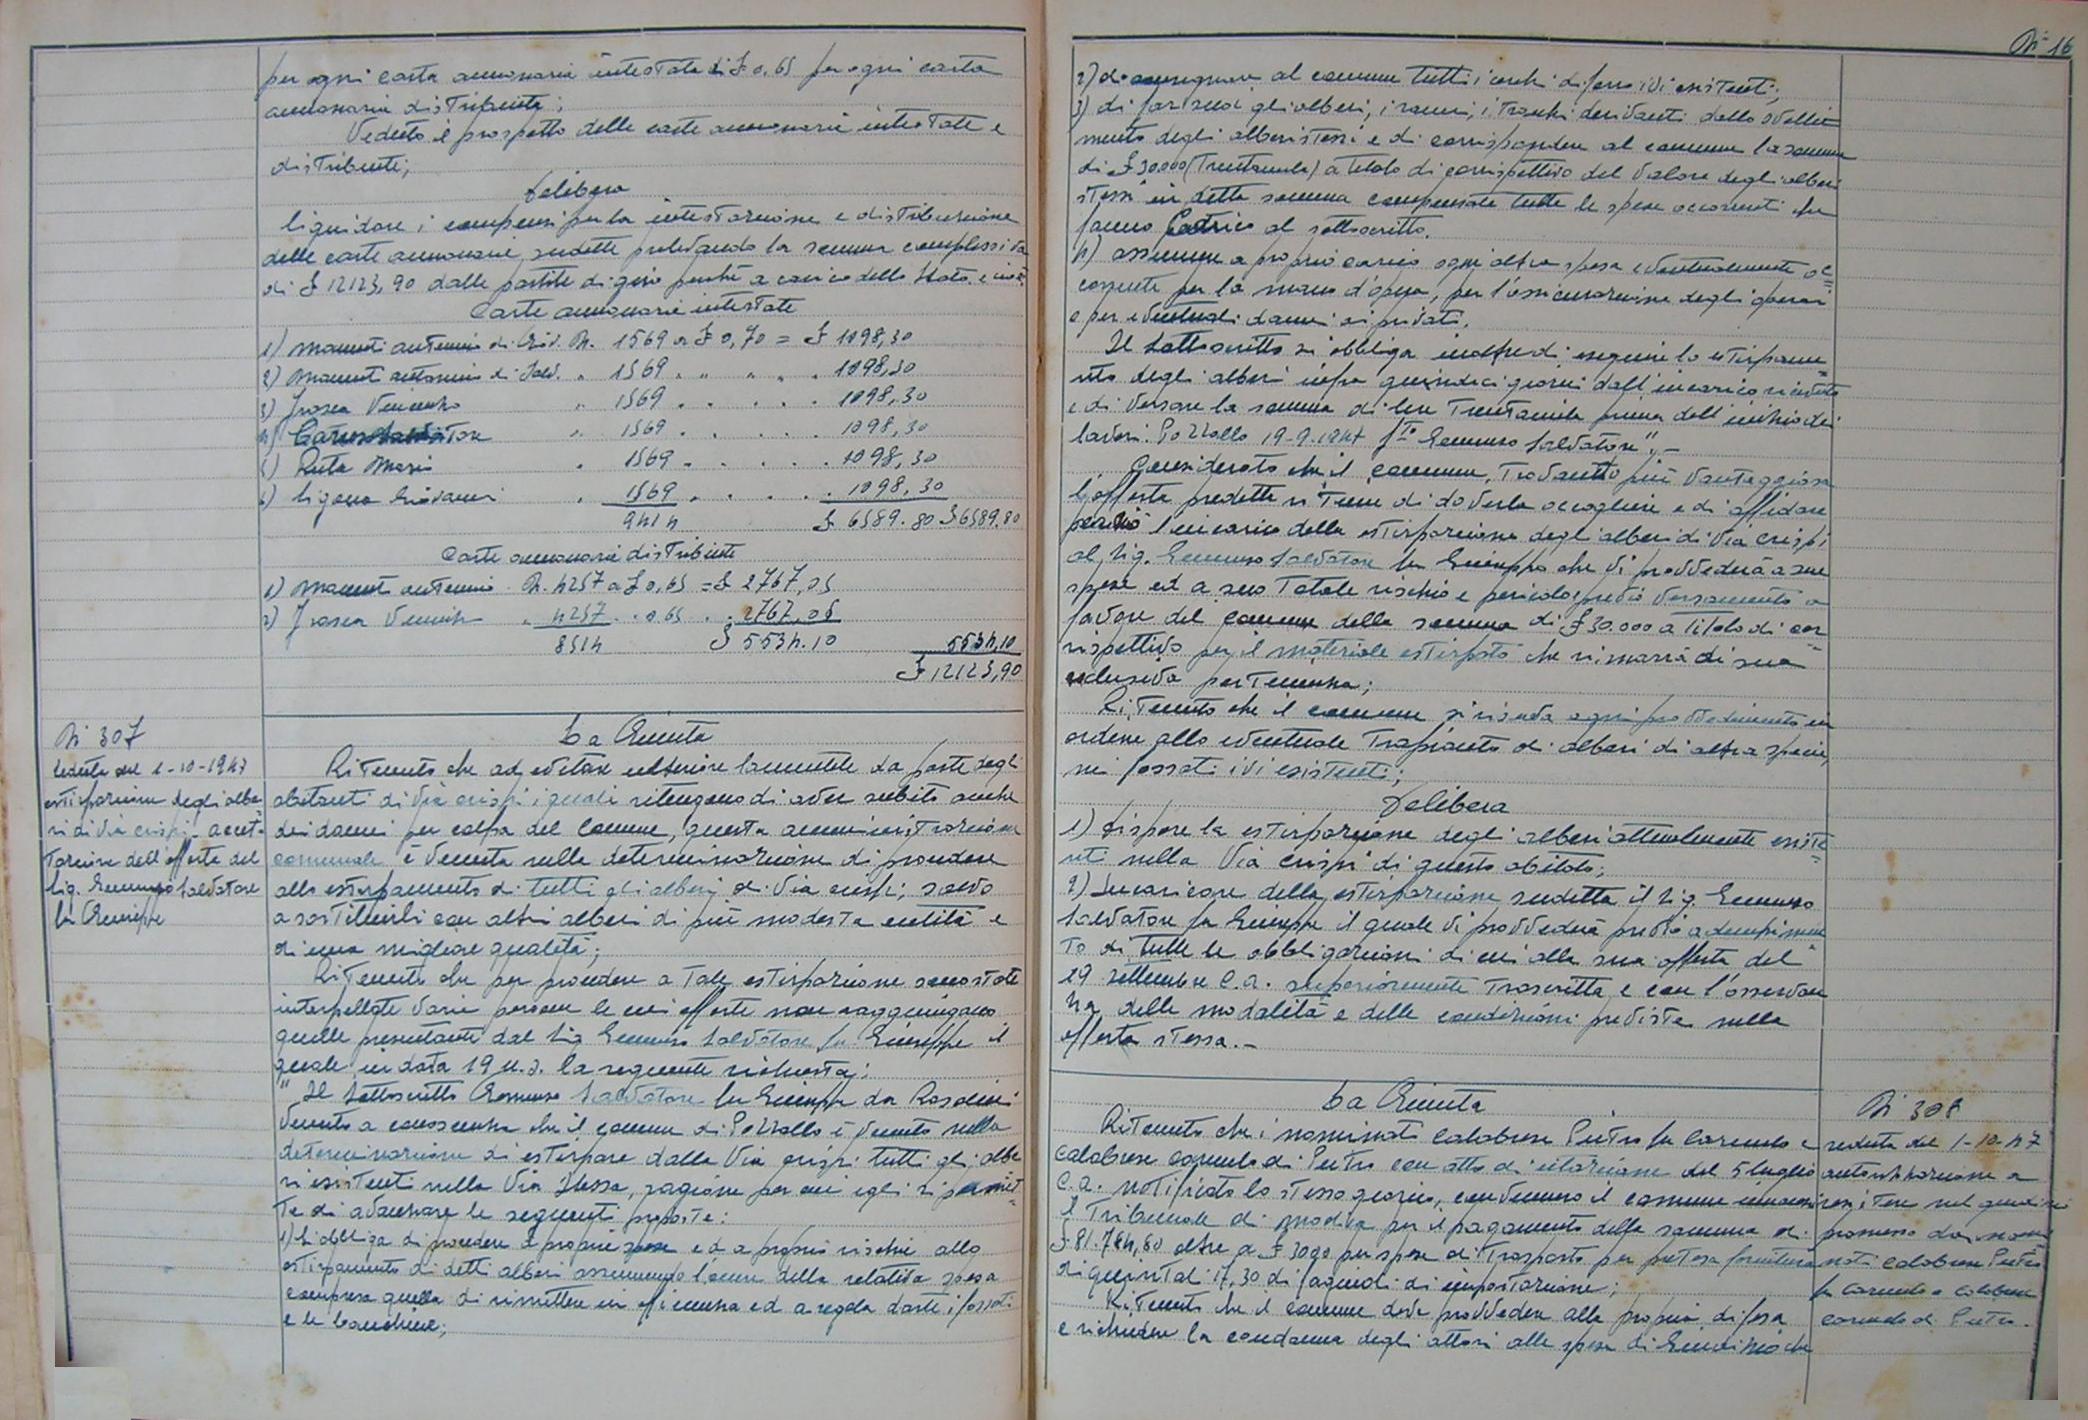 per ogni carta annonaria intestata di £ 0,65 per ogni carta
annonaria distribuita;
Veduto il prospetto delle carte annonarie intestate e
distribuite;
Delibera
liquidare i compensi per la intestazione e distribuzione
delle carte annonarie sudette prelevando la somma complessiva
di £ 12123,90 dalle partite di giro perchè a carico dello Stato e cioè:
Carte annonarie intestate
1) Mament Antonino di Giov. N. 1569 a £ 0,70 = £ 1098,30
2) Mament Antonino di Salv. " 1569 " " " " 1098,30
3) Frasca Vincenzo " 1569 . . . . . 1098,30
4) " 1569 . . . . . 1098,30
5) Ruta Mario . 1569 . . . . . 1098,30
6) Sigona Giovanni . 1569 . . . . . 1098,30
9414 £ 6589.80 £ 6589.80
Carte annonarie distribuite
1) Mament Antonino N. 4257 a £ 0,65 = £ 2767,05
2) Frasca Vincenzo " 4257 . . 0.65 . . 2767,05
8514 £ 5534.10 5534,10
£ 12123,90
N. 307
Seduta del 1-10-1947
estirpazione degli albe
ri di via Crispi - accet-
tazione dell'offerta del
Sig. Gennuso Salvatore
fu Giuseppe
La Giunta
Ritenuto che ad evitare ulteriore lamentele da parte degli
abitanti di via Crispi i quali ritengono di aver subito anche
dei danni per colpa del Comune, questa amministrazione
comunale è venuta nella determinazione di procedere
allo estirpamento di tutti gli alberi di via Crispi, salvo
a sostituirli con altri alberi di più modesta entità e
di una migliore qualità;
Ritenuto che per procedere a tale estirpazione sono state
interpellate varie persone le cui offerte non raggiungono
quelle presentate dal Sig. Gennuso Salvatore fu Giuseppe il
quale in data 19 u.s. la seguente richiesta:
"Il sottoscritto Gennuso Salvatore fu Giuseppe da Rosolini
venuto a conoscenza che il comune di Pozzallo è venuto nella
determinazione di estirpare dalla Via Crispi tutti gli albe
ri esistenti nella Via stessa, ragione per cui egli si permet-
te di avanzare le seguenti proposte:
1) Si obbliga di procedere a proprie spese ed a proprio rischio allo
estirpamento di detti alberi assumendo l'onere della relativa spesa
compresa quella di rimettere in efficienza ed a regola d'arte i fossati
e le banchine;
N. 16
2) di consegnare al comune tutti i cerchi di ferro ivi esistenti;
3) di far suoi gli alberi, i rami, i tronchi derivanti dallo svelli
mento degli alberi stessi e di corrispondere al comune la somma
di £ 30.000 (Trentamila) a titolo di corrispettivo del valore degli alberi
stessi in detta somma compensate tutte le spese occorrenti che
fanno carico al sottoscritto.
4) assumere a proprio carico ogni altra spesa eventualmente oc=
corrente per la mano d'opera, per l'assicurazione degli operai
e per eventuali danni ai privati.
Il sottoscritto si obbliga inoltre di eseguire lo estirpame=
nto degli alberi infra quindici giorni dall'incarico ricevuto
e di versare la somma di lire Trentamila prima dell'inizio dei
lavori. Pozzallo 19-9-1947 fto Gennuso Salvatore". -
Considerato che il comune, trovando più vantaggiosa
l'offerta predetta ritiene di doverla accogliere e di affidare
perciò l'incarico della estirpazione degli alberi di Via Crispi
al Sig. Gennuso Salvatore fu Giuseppe che vi provvederà a sue
spese ed a suo totale rischio e pericolo previo versamento a
favore del comune della somma di £ 30.000 a titolo di cor
rispettivo per il materiale estirpato che rimarrà di sua
esclusiva pertinenza;
Ritenuto che il comune si riserva ogni provvedimento in
ordine allo eventuale trapianto di alberi di altra specie,
nei fossati ivi esistenti;
Delibera
1) Disporre la estirpazione degli alberi attualmente esiste=
nti nella Via Crispi di questo abitato;
2) Incaricare della estirpazione sudetta il Sig. Gennuso
Salvatore fu Giuseppe il quale vi provvederà previo adempimen
to di tutte le obbligazioni di cui alla sua offerta del
19 settembre c.a. superiormente trascritta e con l'osservan
za delle modalità e delle condizioni previste nella
offerta stessa.-
La Giunta
Ritenuto che i nominati Calabrese Pietro fu Carmelo e
Calabrese Carmelo di Pietro con atto di citazione del 5 luglio
c.a. notificato lo stesso giorno, convennero il comune innanzi
il Tribunale di Modica per il pagamento della somma di
£ 81.764,60 oltre a £ 3090 per spese di trasporto per pretesa fornitura
di quintali 17,30 di fagiuoli di importazione;
Ritenuto che il comune deve provvedere alla propria difesa
e richiedere la condanna degli attori alle spese di giudizio che
N. 308
seduta del 1-10-47
autorizzazione a
resistere nel giudizio
promosso dai nomi
nati Calabrese Pietro
fu Carmelo e Calabrese
Carmelo di Pietro.